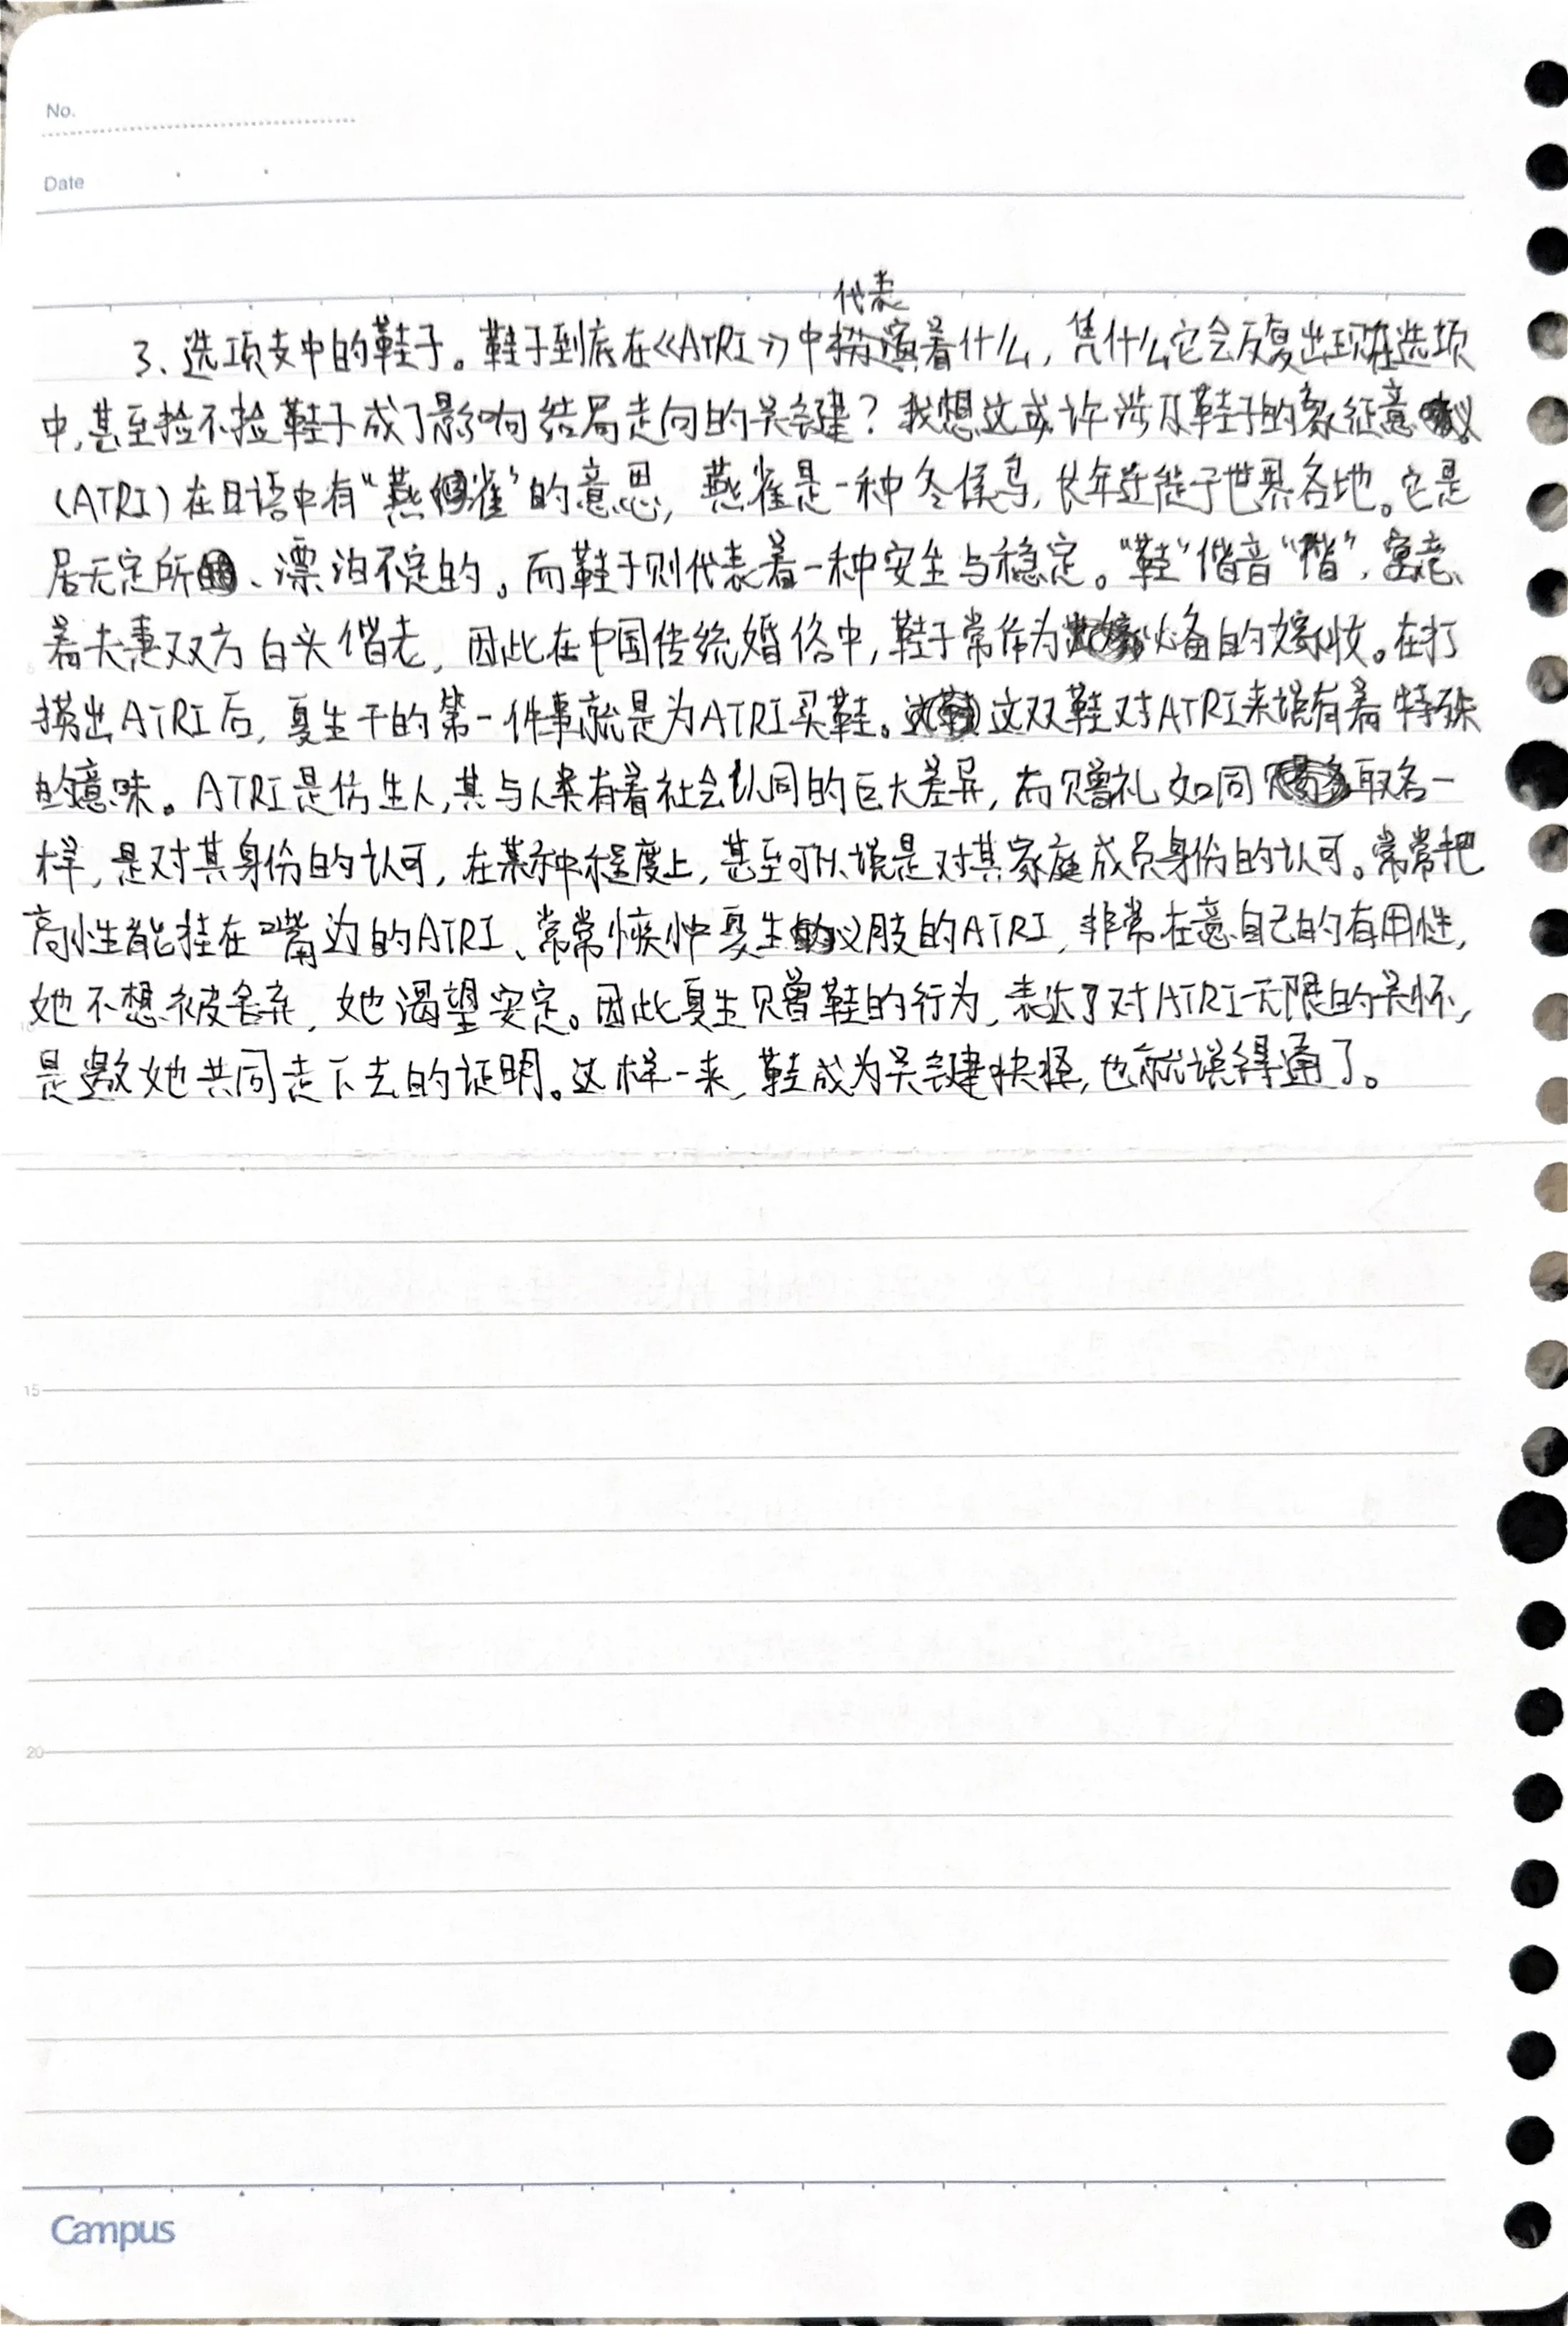 No.
Date
代表
3、选项支中的鞋子。鞋子到底在《ATRI》中扮演着什么，凭什么它会反复出现在选项
中，甚至捡不捡鞋子成了影响结局走向的关键？我想这或许涉及鞋子的象征意义。
(ATRI) 在日语中有“燕雀”的意思，燕雀是一种冬候鸟，长年迁徙于世界各地。它是
居无定所、漂泊不定的。而鞋子则代表着一种安生与稳定。“鞋”偕音“偕”，寓意
着夫妻双方白头偕老，因此在中国传统婚俗中，鞋子常作为必备的嫁妆。在打
捞出ATRI后，夏生干的第一件事就是为ATRI买鞋。这双鞋对ATRI来说有着特殊
的意味。ATRI是仿生人，其与人类有着社会认同的巨大差异，而赠礼如同取名一
样，是对其身份的认可，在某种程度上，甚至可以说是对其家庭成员身份的认可。常常把
高性能挂在嘴边的ATRI、常常嫉妒夏生义肢的ATRI，非常在意自己的有用性，
她不想被舍弃，她渴望安定。因此夏生赠鞋的行为，表达了对ATRI无限的关怀，
是邀她共同走下去的证明。这样一来，鞋成为关键抉择，也就说得通了。
15
20
Campus